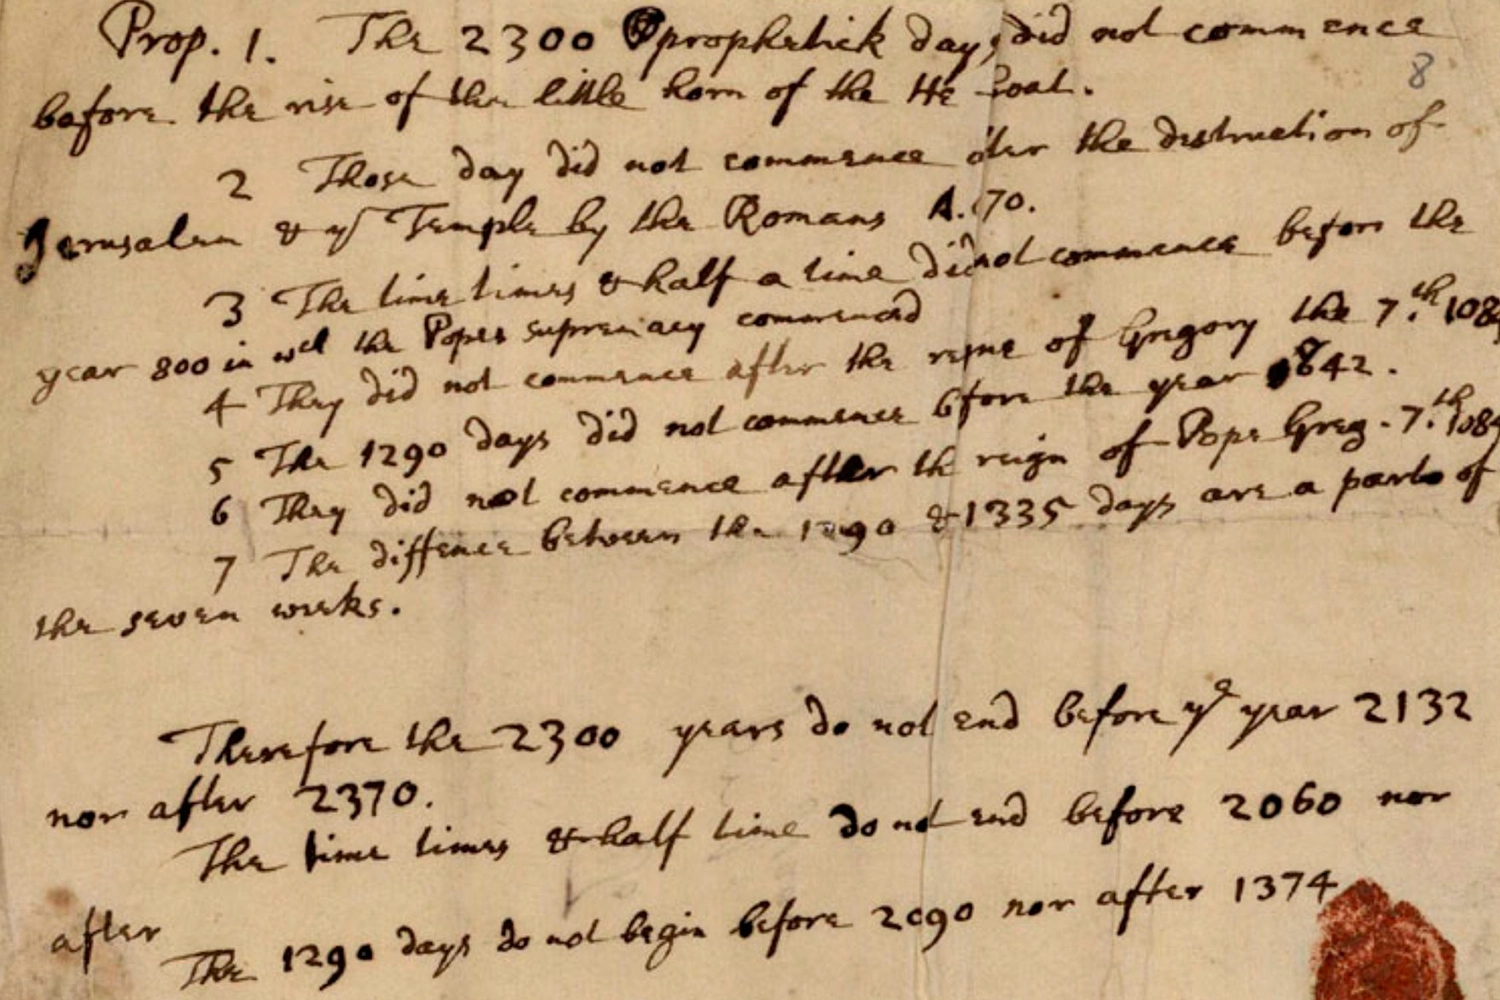 Prop. 1. The 2300 prophetick days did not commence
8
before the rise of the little horn of the He Goat.
2 Those day did not commence after the destruction of
Jerusalem & yᵉ Temple by the Romans A. 70.
3 The time times & half a time did not commence before the
year 800 in wᶜʰ the Popes supremacy commenced
4 They did not commence after the reigne of Gregory the 7.ᵗʰ 1084
5 The 1290 days did not commence before the year 842.
6 They did not commence after the reign of Pope Greg. 7.ᵗʰ 1084
7 The diffence between the 1290 & 1335 days are a parts of
the seven weeks.
Therefore the 2300 years do not end before yᵉ year 2132
nor after 2370.
The time times & half time do not end before 2060 nor
after
The 1290 days do not begin before 2090 nor after 1374